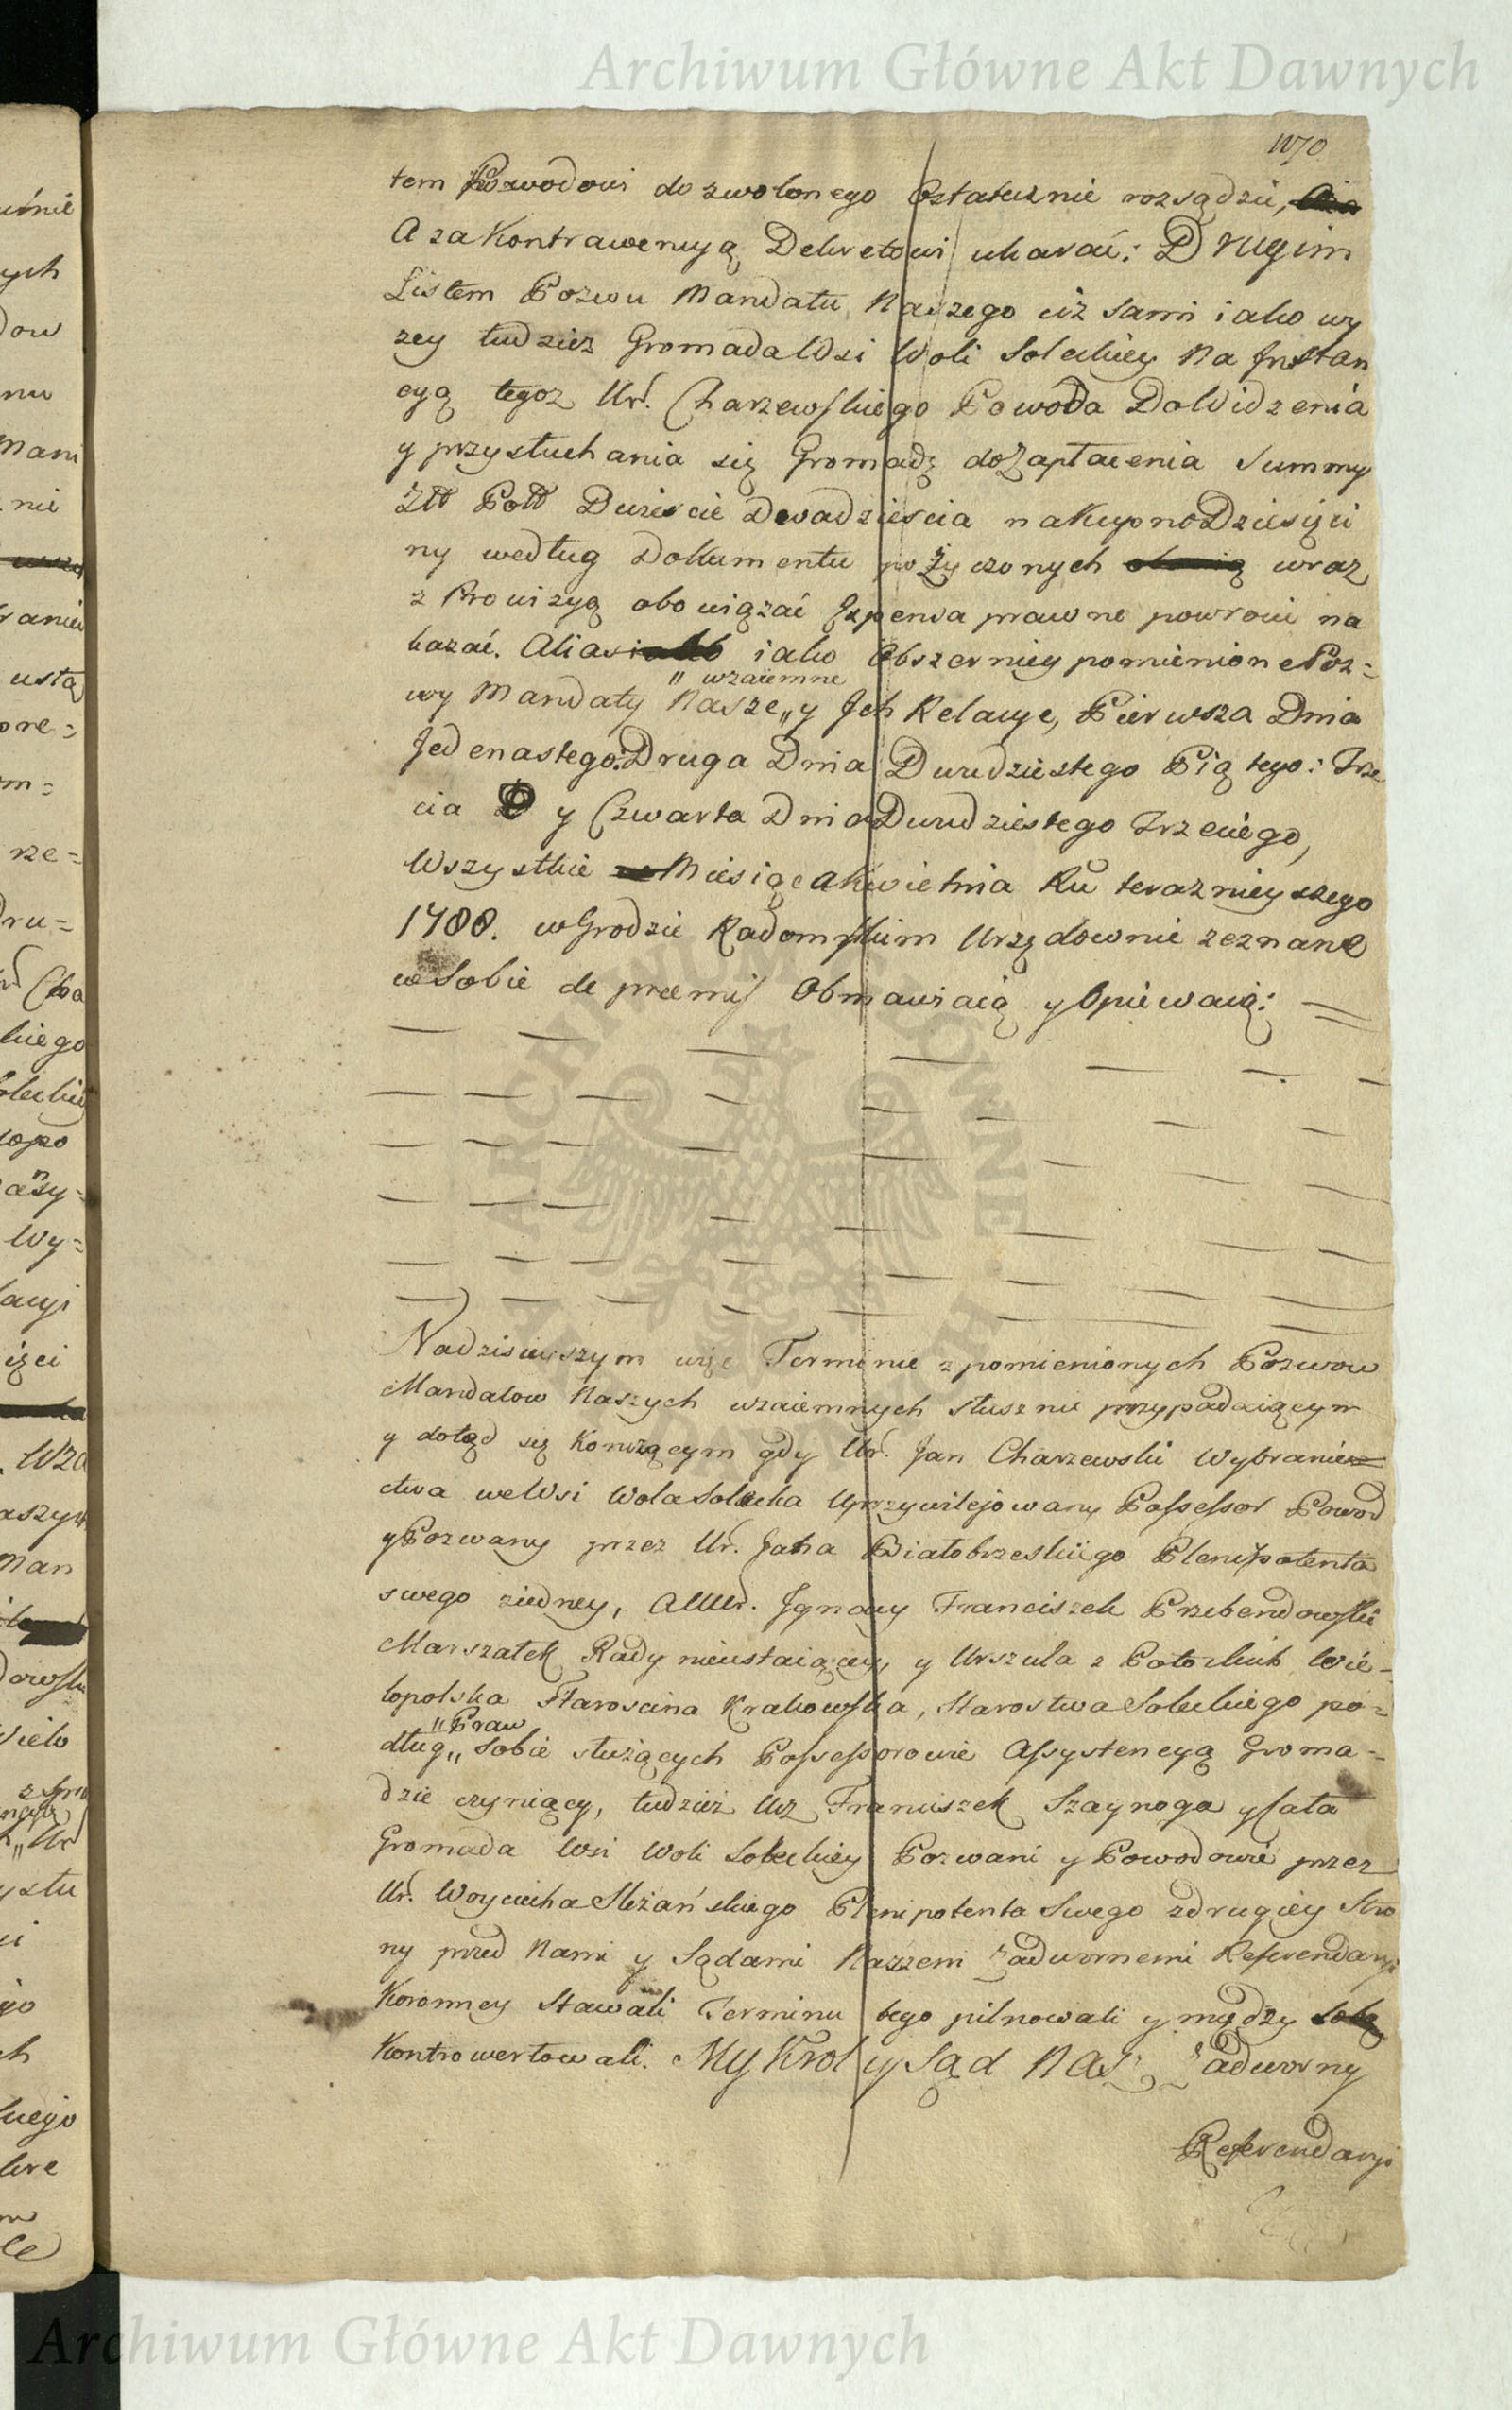 Archiwum Główne Akt Dawnych
1170
tem Pozwodowi dozwolonego Ostatecznie rozsądzić,
A za Kontrawencyą Dekretowi ukarać: Drugim
Listem Pozwu Mandatu Naszego ciż sami iako wy
zey tudziez Gromada Wsi Woli Soleckiey Na Instan
cyą tegoz Ur. Charzewskiego Powoda Do Widzenia
y przysłuchania się Gromadę do Zapłacenia Summy
Złł Poll Dwieście Dwadzieścia na Kupno Dziesięci
ny według Dokumentu pożyczonych wraz
z Prowizyą obowiązać Expensa prawne powrocić na
kazać. Alias iako Obszerniey pomienione Poz=
" wzaiemne
wy Mandaty Nasze,, y Ich Relacye, Pierwsza Dnia
Jedenastego: Druga Dnia Dwudziestego Piątego: Trze
cia y Czwarta Dnia Dwudziestego Trzeciego,
Wszystkie Miesiąca Kwietnia Ru terazniejszego
1788. w Grodzie Radomskim Urzędownie zeznane
w Sobie de praemiss Obmawiaią y Opiewaią: =
Na dzisieyszym więc Terminie z pomienionych Pozwow
Mandatow Naszych wzaiemnych słusznie przypadaiącym
y dotąd się Kończącym gdy Ur. Jan Charzewski Wybraniec=
ctwa we Wsi Wola Solecka Uprzywilejowany Possessor Powod
y Pozwany przez Ur. Jana Białobrzeskiego Plenipotenta
swego ziedney, A Ur. Ignacy Franciszek Przebendowski
Marszałek Rady nieustaiącey, y Urszula z Potockich Wie-
lopolska Starościna Krakowska, Starostwa Soleckiego po-
" Praw
dług,, Sobie służących Possessorowie Assystencyą Groma-
dzie czyniący, tudzież Ucz Franciszek Szaynoga y cała
Gromada Wsi Woli Soleckiey Pozwani y Powodowie przez
Ur. Woyciecha Sleżańskiego Plenipotenta Swego z drugiey Stro
ny przed Nami y Sądami Naszemi Zadwornemi Referendaryi
Koronney Stawali Terminu tego pilnowali y między sobą
Kontrowertowali. My Krol y Sąd Nasz Zadworny
Referendaryi
Archiwum Główne Akt Dawnych